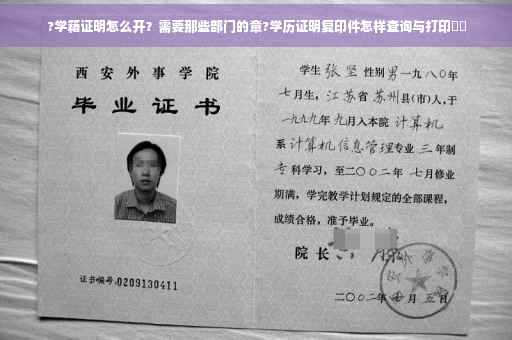 ?学籍证明怎么开？需要那些部门的章?学历证明复印件怎样查询与打印
西安外事学院
毕业证书
证书编号:0209130411
学生 张坚 性别 男 一九八〇年
七月生，江苏省 苏州县(市)人，于
一九九九年九月入本院 计算机
系计算机信息管理专业 三 年制
专科学习，至二〇〇二年 七月修业
期满，学完教学计划规定的全部课程，
成绩合格，准予毕业。
院长
二〇〇二年 月五日